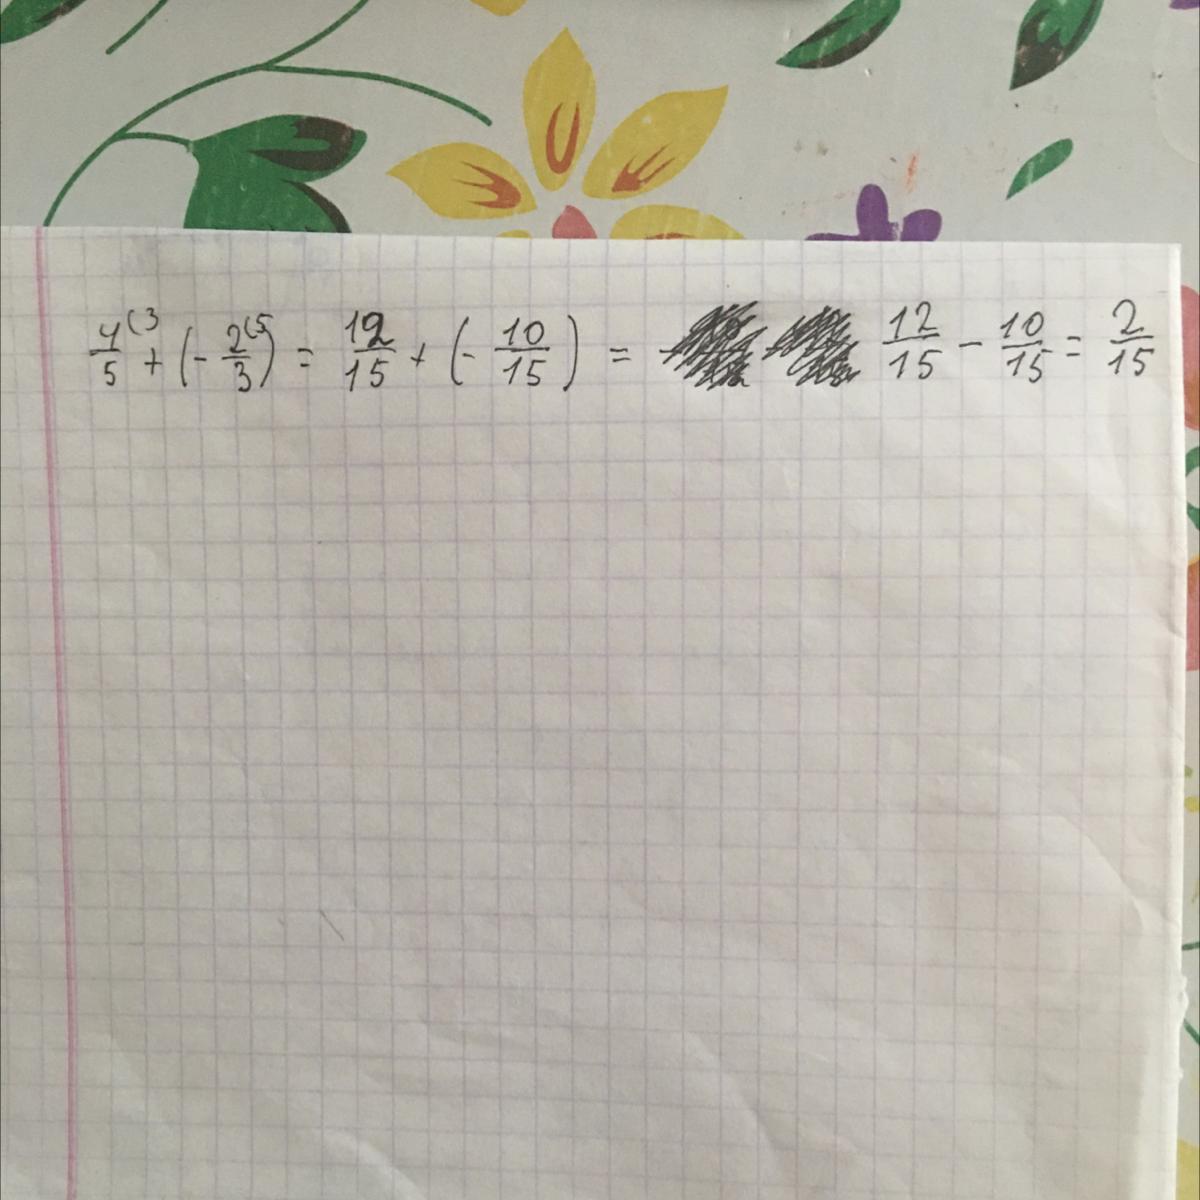 4⁽³/5 + (- 2⁽⁵/3) = 12/15 + (- 10/15) = 12/15 - 10/15 = 2/15